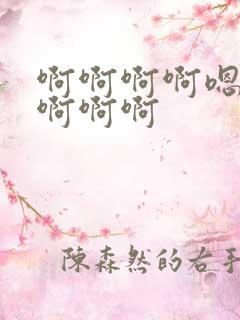 啊啊啊啊嗯
啊啊啊
陳森然的右手